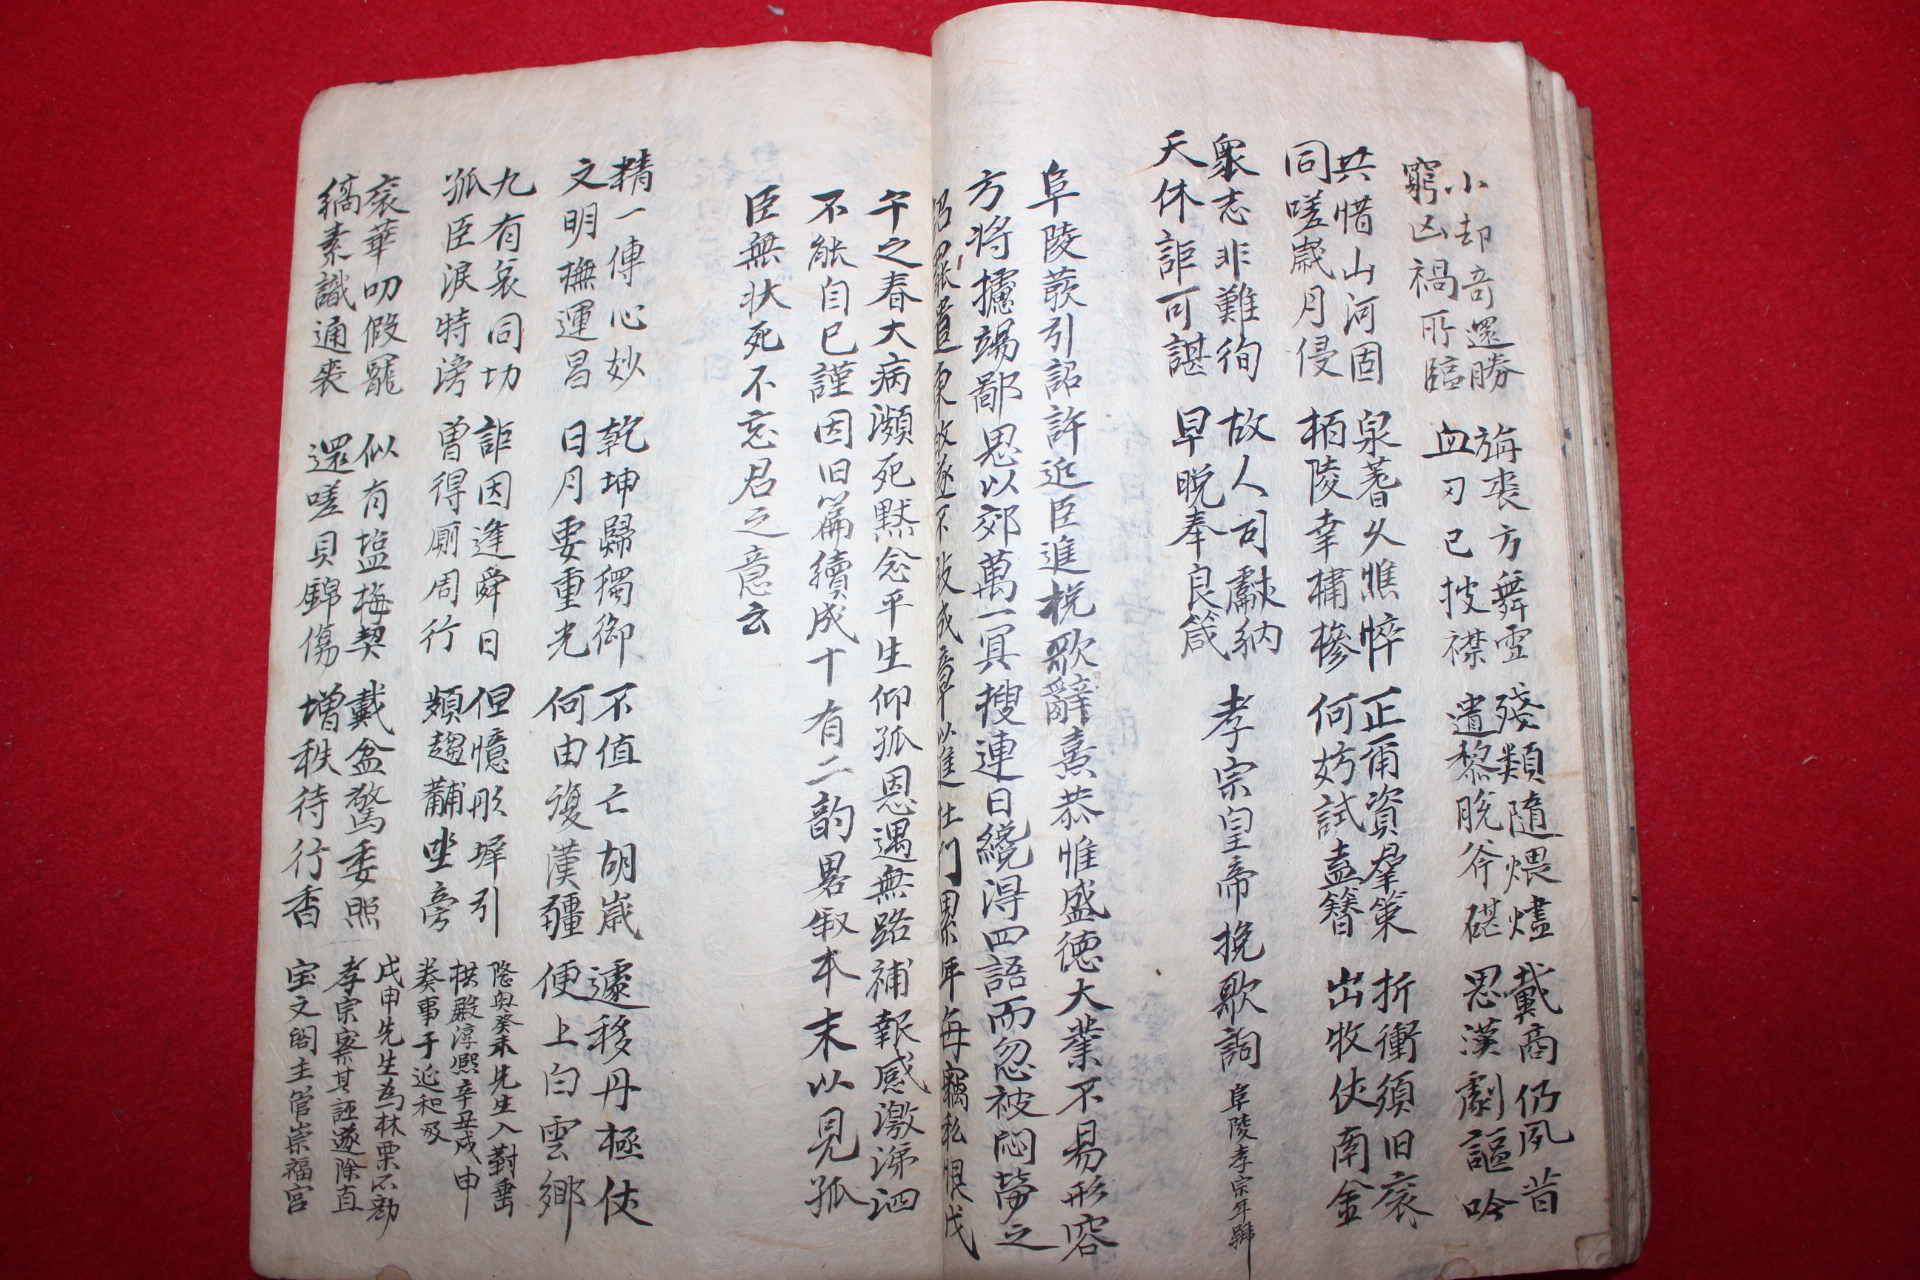 小却奇還勝
窮凶禍所臨
旃裘方舞雪
血刃已披襟
殘類隨煨燼
遺黎脫斧碪
戴商仍夙昔
思漢劇謳吟
共惜山河固
同嗟歲月侵
泉蓍久憔悴
栢陵幸橚槮
正甭資羣策
何妨試盍簪
折衝須旧袞
出牧仗南金
衆志非難徇
天休詎可諶
故人司獻納
早晚奉良箴
孝宗皇帝挽歌詞 阜陵孝宗年號
阜陵菆引詔許近臣進挽歌辭熹恭惟盛德大業不易形容
方將攄竭鄙思以効萬一冥搜連日纔得四語而忽被閔勞之
詔罷遣東歸遂不敢成章以進杜門累年每竊私恨戊
午之春大病瀕死默念平生仰孤恩遇無路補報感激涕泗
不能自已謹因旧篇續成十有二韵畧敍本末以見孤
臣無狀死不忘君之意云
精一傳心妙
文明撫運昌
乾坤歸獨御
日月要重光
不值亡胡歲
何由復漢疆
遽移丹極仗
便上白雲鄉
九有哀同切
孤臣淚特滂
詎因逢舜日
曾得厠周行
但憶彤墀引
頻趨黼坐旁
隆興癸未先生入對垂
拱殿淳熙辛丑戊申
奏事于延和
袞華叨假寵
縞素識通喪
似有塩梅契
還嗟貝錦傷
戴盆驚委照
增秩待行香
戊申先生為林栗所劾
孝宗察其誣遂除直
宝文閣主管崇福宮